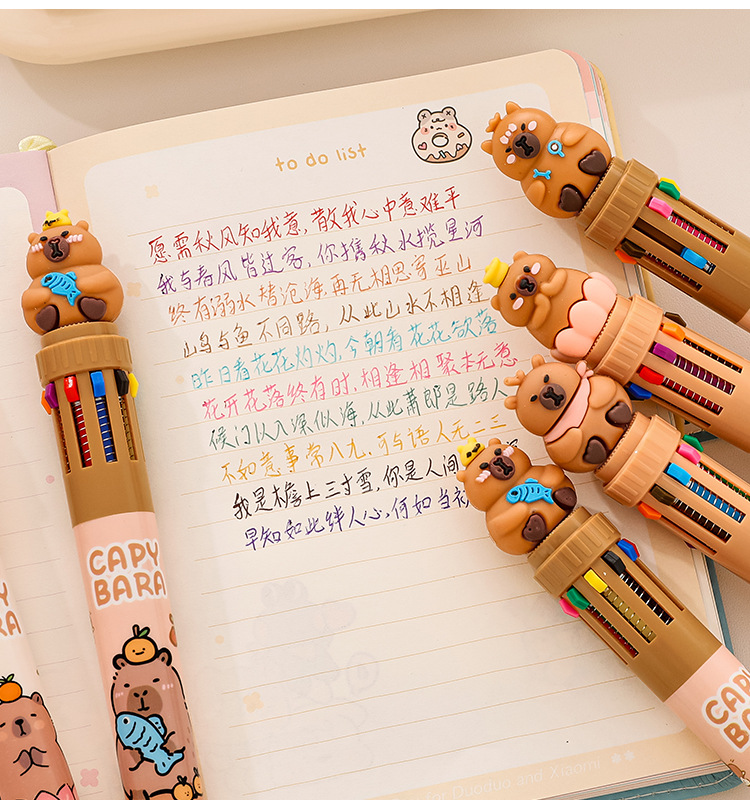 to do list
愿需秋风知我意，散我心中意难平
我与春风皆过客，你携秋水揽星河
终有溺水替沧海，再无相思寄巫山
山鸟与鱼不同路，从此山水不相逢
昨日看花花灼灼，今朝看花花欲落
花开花落终有时，相逢相聚本无意
侯门以入深似海，从此萧郎是路人
不如意事常八九，可与语人无二三
我是檐上三寸雪，你是人间
早知如此绊人心，何如当初
CAPY
BARA
for Duoduo and Xiaomi
CAPY
BARA